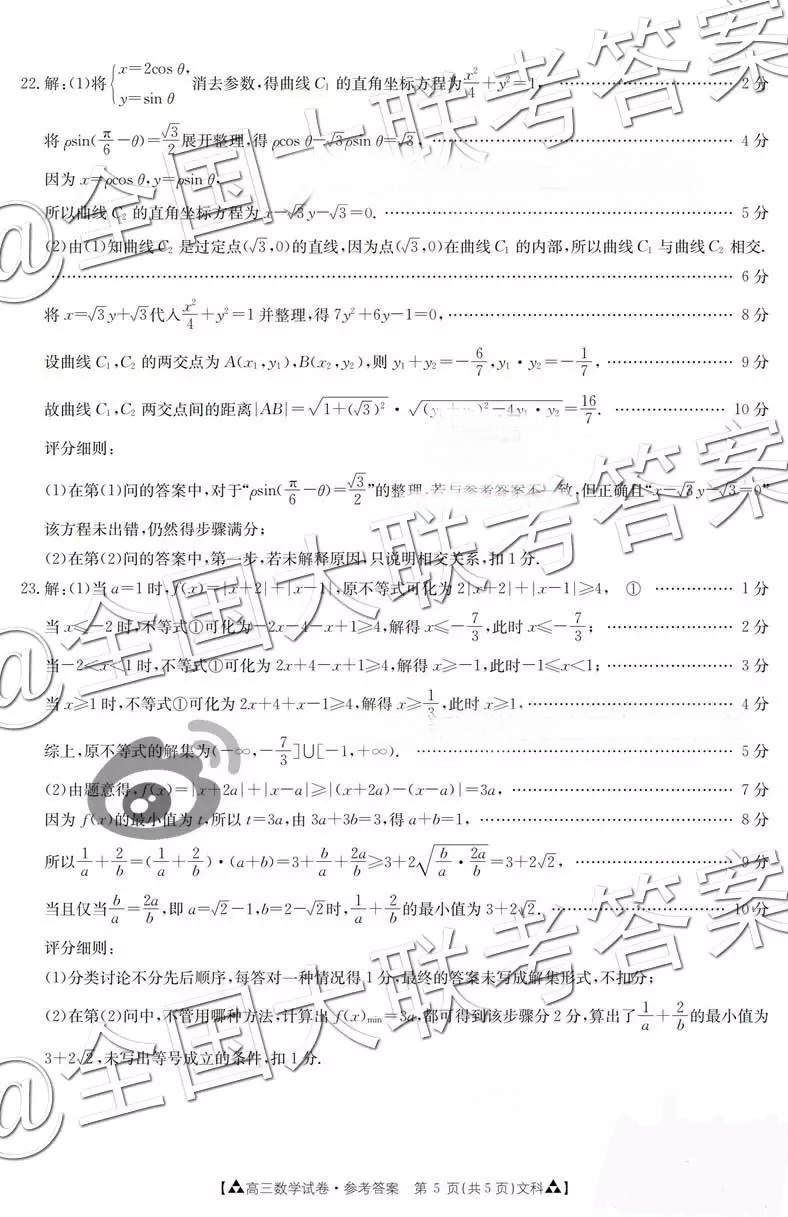 22.解:(1)将{x=2cos θ, y=sin θ 消去参数,得曲线 C₁ 的直角坐标方程为x²/4+y²=1, …… 2 分
将 ρsin(π/6-θ)=√3/2展开整理,得 ρcos θ-√3ρsin θ=√3, …… 4 分
因为 x=ρcos θ,y=ρsin θ,
所以曲线 C₂ 的直角坐标方程为 x-√3y-√3=0. …… 5 分
(2)由(1)知曲线 C₂ 是过定点(√3,0)的直线,因为点(√3,0)在曲线 C₁ 的内部,所以曲线 C₁ 与曲线 C₂ 相交.
…… 6 分
将 x=√3y+√3代入x²/4+y²=1 并整理,得 7y²+6y-1=0, …… 8 分
设曲线 C₁,C₂ 的两交点为 A(x₁,y₁),B(x₂,y₂),则 y₁+y₂=-6/7,y₁·y₂=-1/7, …… 9 分
故曲线 C₁,C₂ 两交点间的距离|AB|=√(1+(√3)²)·√((y₁+y₂)²-4y₁·y₂)=16/7. …… 10 分
评分细则:
(1)在第(1)问的答案中,对于“ρsin(π/6-θ)=√3/2”的整理,若与参考答案不一致,但正确且“x-√3y-√3=0”
该方程未出错,仍然得步骤满分;
(2)在第(2)问的答案中,第一步,若未解释原因,只说明相交关系,扣 1 分.
23.解:(1)当 a=1 时,f(x)=|x+2|+|x-1|,原不等式可化为 2|x+2|+|x-1|≥4, ① …… 1 分
当 x≤-2 时,不等式①可化为-2x-4-x+1≥4,解得 x≤-7/3,此时 x≤-7/3; …… 2 分
当-2<x<1 时,不等式①可化为 2x+4-x+1≥4,解得 x≥-1,此时-1≤x<1; …… 3 分
当 x≥1 时,不等式①可化为 2x+4+x-1≥4,解得 x≥1/3,此时 x≥1, …… 4 分
综上,原不等式的解集为(-∞,-7/3]∪[-1,+∞). …… 5 分
(2)由题意得,f(x)=|x+2a|+|x-a|≥|(x+2a)-(x-a)|=3a, …… 7 分
因为 f(x)的最小值为 t,所以 t=3a,由 3a+3b=3,得 a+b=1, …… 8 分
所以1/a+2/b=(1/a+2/b)·(a+b)=3+b/a+2a/b≥3+2√(b/a·2a/b)=3+2√2, …… 9 分
当且仅当b/a=2a/b,即 a=√2-1,b=2-√2时,1/a+2/b的最小值为 3+2√2. …… 10 分
评分细则:
(1)分类讨论不分先后顺序,每答对一种情况得 1 分,最终的答案未写成解集形式,不扣分;
(2)在第(2)问中,不管用哪种方法,计算出 f(x)min=3a,都可得到该步骤分 2 分,算出了1/a+2/b的最小值为
3+2√2,未写出等号成立的条件,扣 1 分.
@全国大联考答案
@全国大联考答案
@全国大联考答案
【高三数学试卷·参考答案 第 5 页(共 5 页)文科】